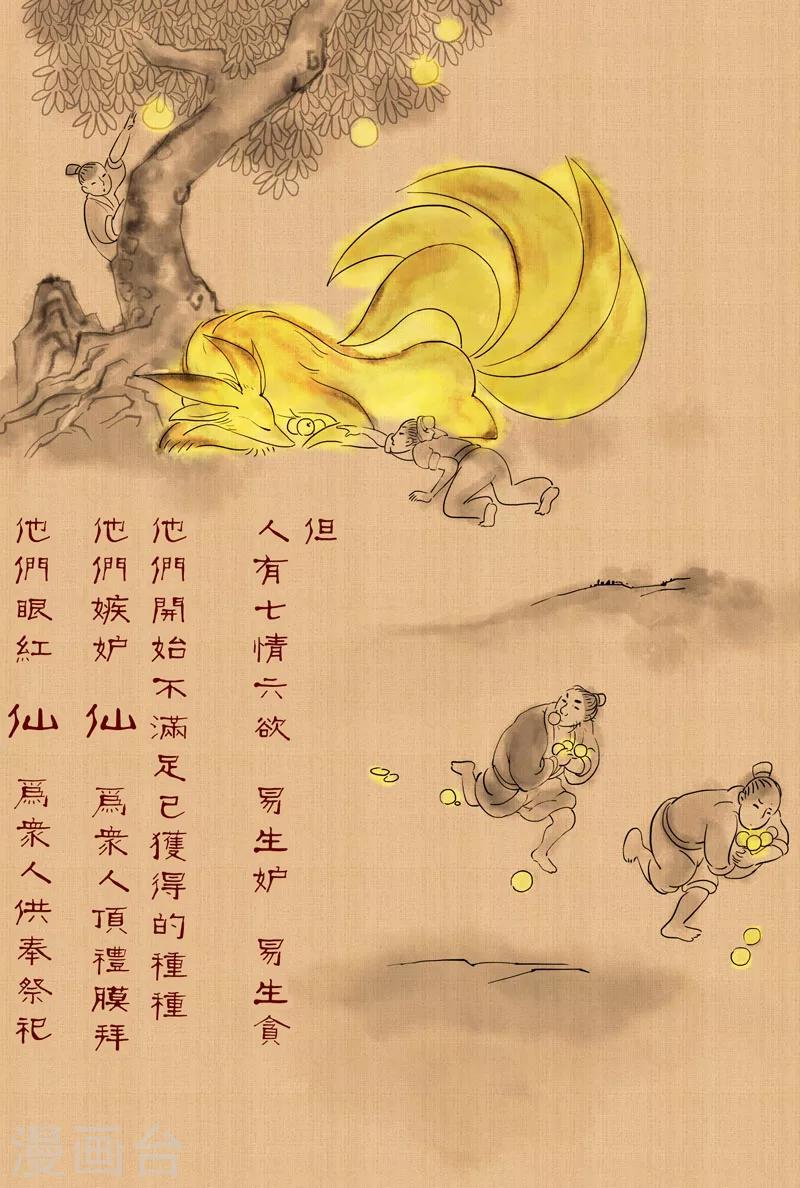 但
人有七情六欲 易生妒 易生貪
他們開始不滿足已獲得的種種
他們嫉妒 仙 為眾人頂禮膜拜
他們眼紅 仙 為眾人供奉祭祀
漫画台